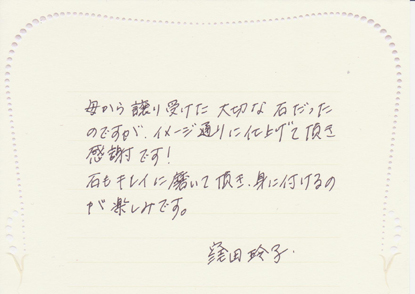 母から譲り受けた大切な石だった
のですが、イメージ通りに仕上げて頂き
感謝です!
石もキレイに磨いて頂き、身に付けるの
が楽しみです。
窪田玲子